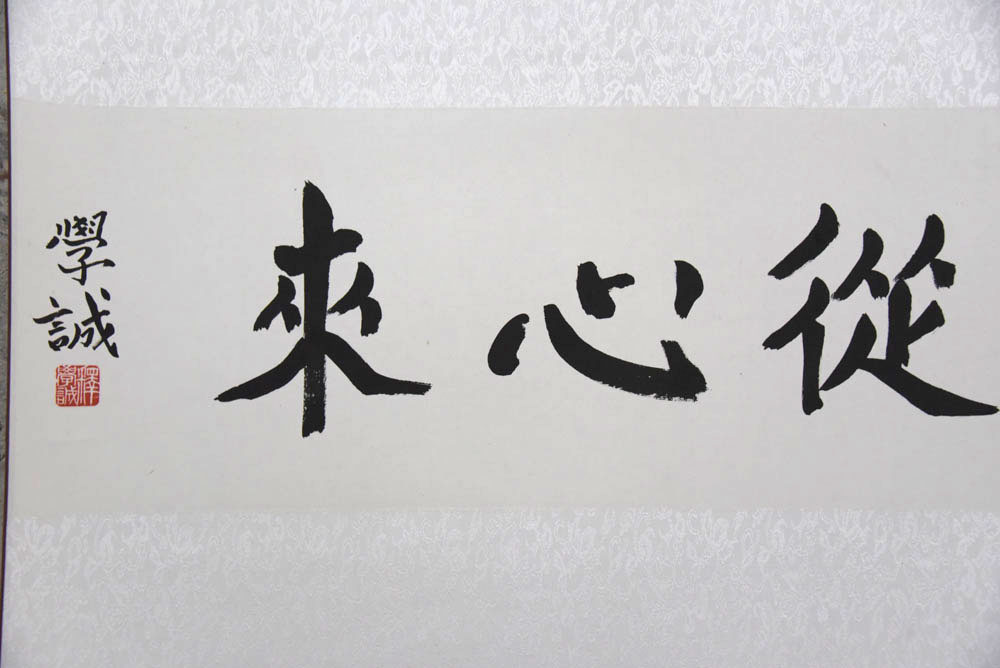 從心來
學誠
釋學誠